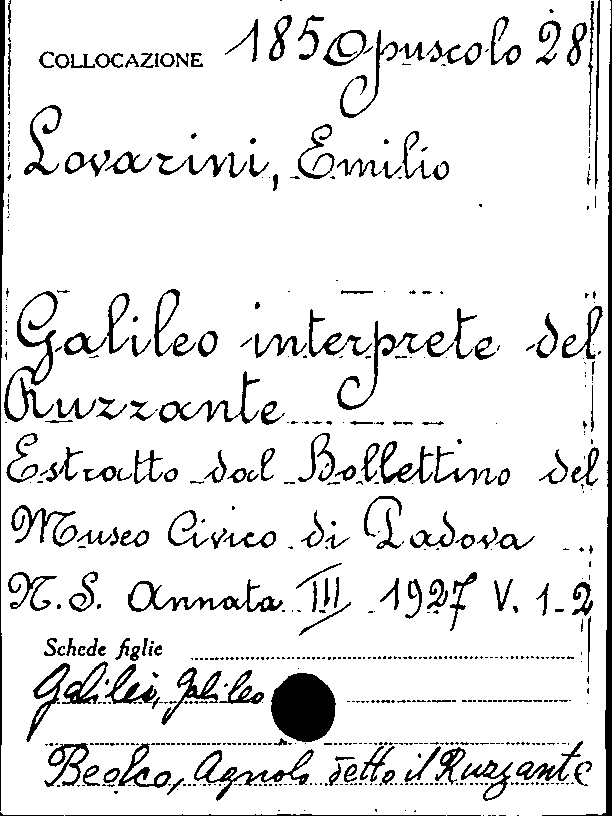 COLLOCAZIONE 185 Opuscolo 28
Lovarini, Emilio
Galileo interprete del
Ruzzante
Estratto dal Bollettino del
Museo Civico di Padova
N.S. Annata III 1927 V. 1-2
Schede figlie
Galilei, Galileo
Beolco, Agnolo detto il Ruzzante